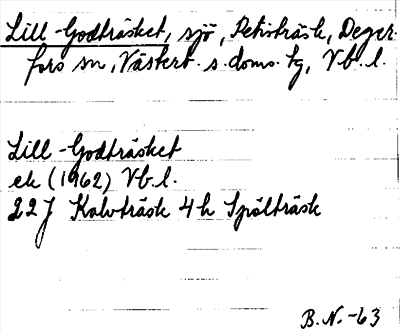 Lill-Godträsket, sjö, Petisträsk, Deger-
fors sn, Västerb. s. doms. tg, Vb. l.
Lill-Godträsket
ek (1962) Vb. l.
22J Kalvträsk 4h Spölträsk
B.N.-63